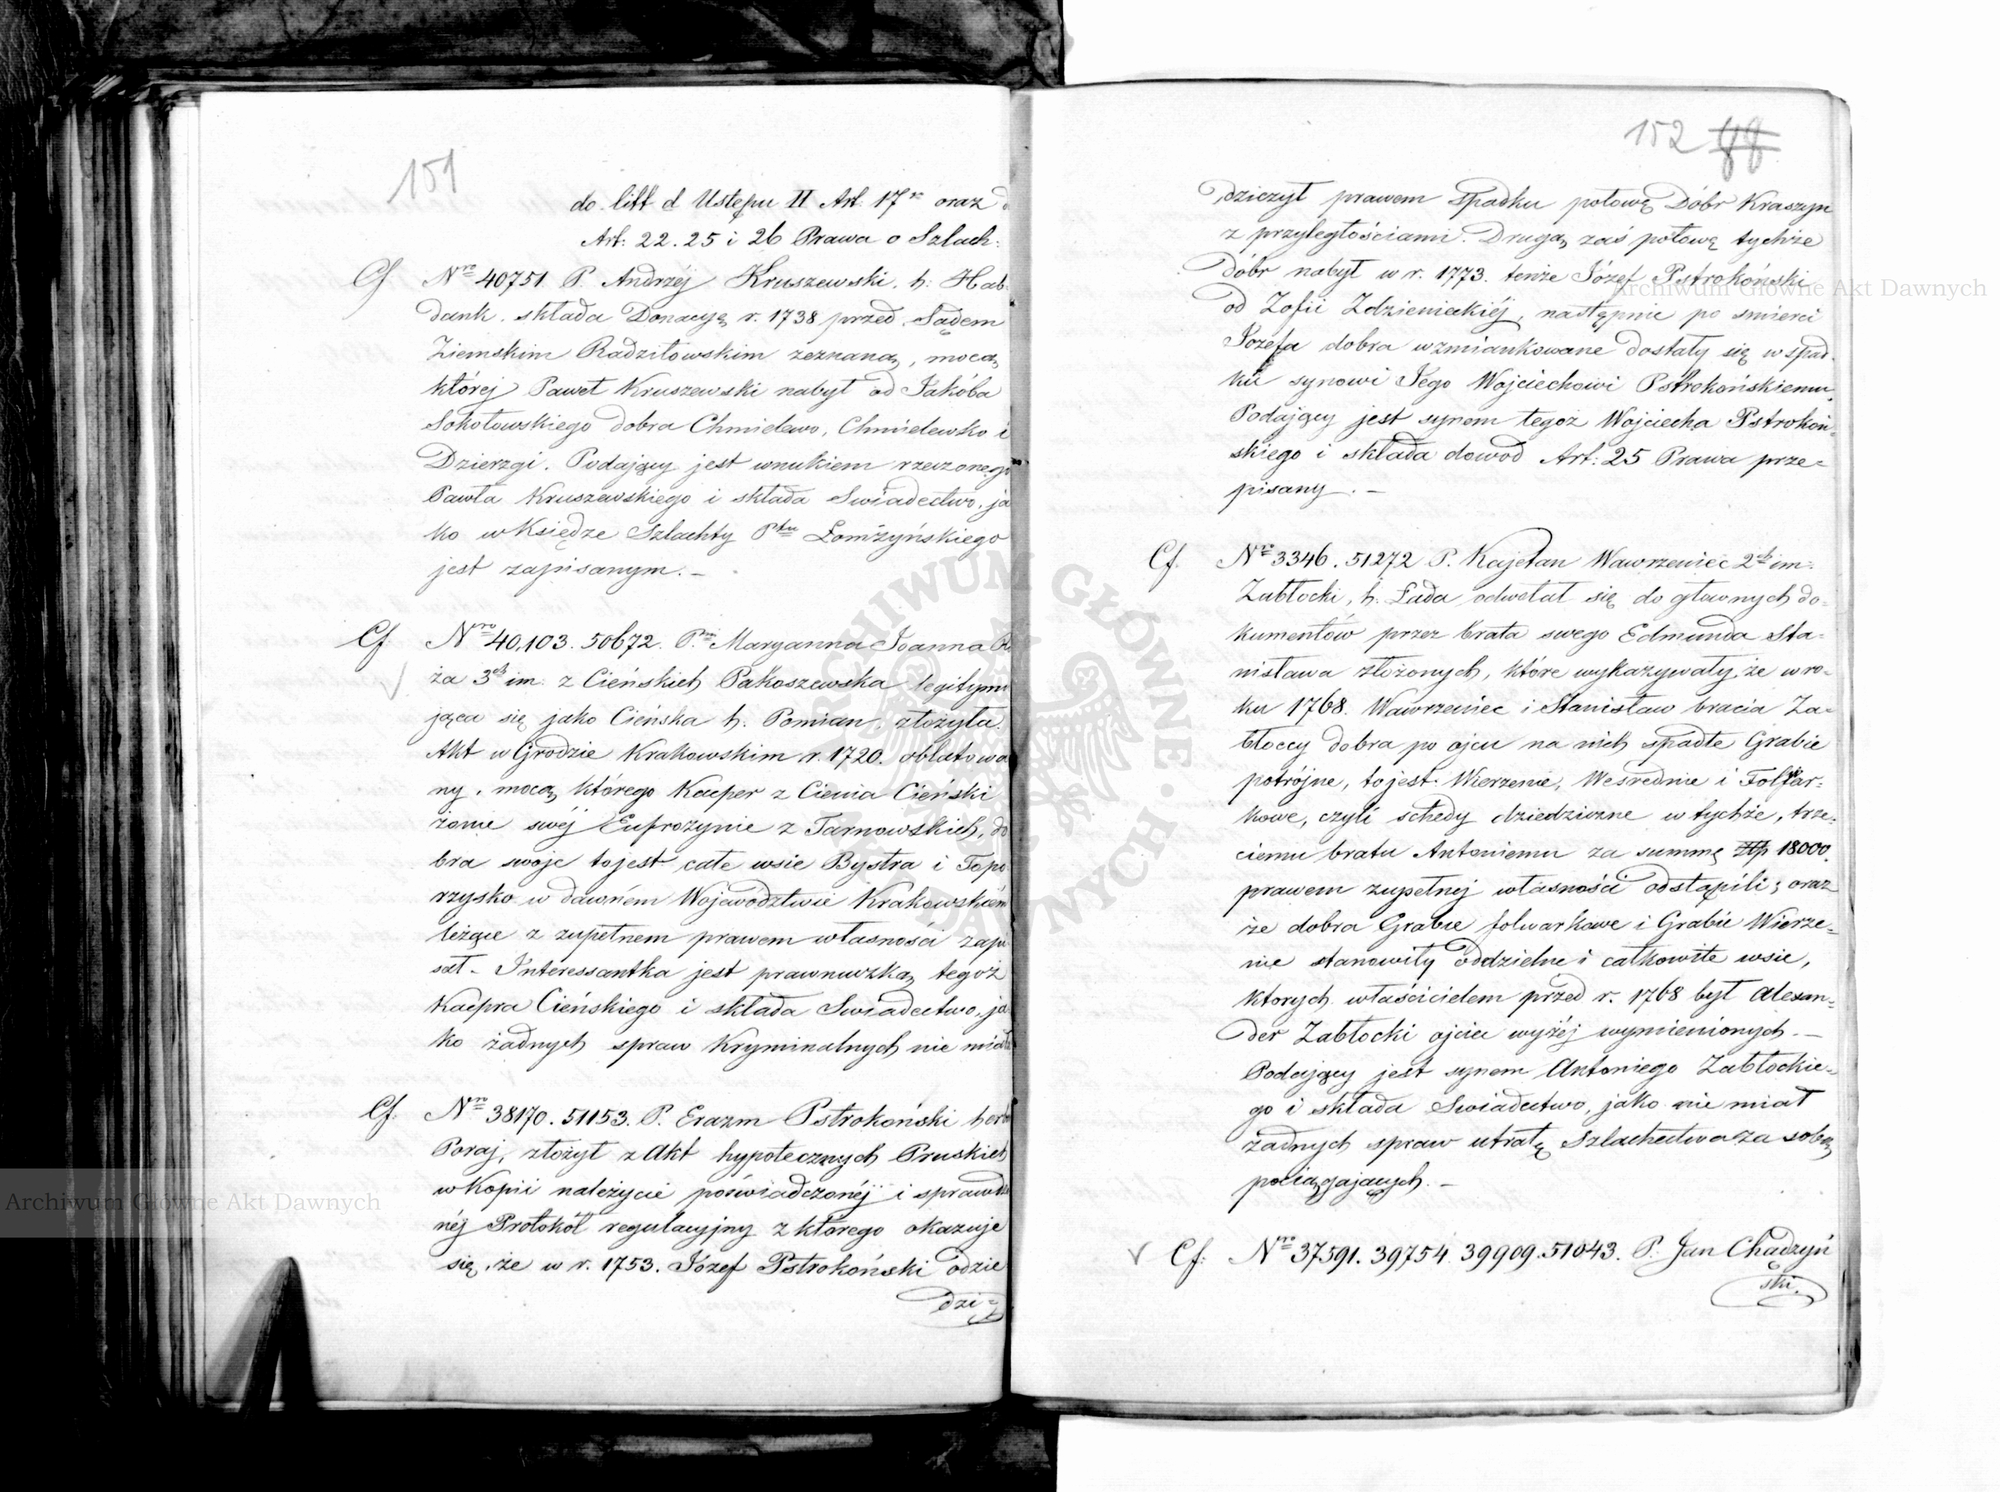 151
do litt d Ustępu II Art. 17go oraz d
Art: 22. 25 i 26 Prawa o Szlach:
Cf Nro 40751. P. Andrzéj Kruszewski. h. Hab-
dank. składa Donacyę r. 1738 przed Sądem
Ziemskim Radziłowskim zeznaną, mocą
któréj Paweł Kruszewski nabył od Jakóba
Sokołowskiego dobra Chmielewo, Chmielewko i
Dzierzgi. Podający jest wnukiem rzeczonego
Pawła Kruszewskiego i składa Swiadectwo, ja
ko w Księdze Szlachty Ptu Łomżyńskiego
jest zapisanym. –
Cf Nro 40,103. 50672. Pni Maryanna Joanna Ró
ża 3ch im. z Cieńskich Pakoszewska legitymu
jąca się jako Cieńska h. Pomian, złożyła
Akt w Grodzie Krakowskim r. 1720. oblatowa
ny, mocą którego Kacper z Cienia Cieński
żonie swéj Eufrozynie z Tarnowskich, do
bra swoje tojest całe wsie Bystra i Topo
rzysko w dawném Województwie Krakowskiém
leżące z zupełnem prawem własności zapi
sał. Interessantka jest prawnuczką tegoż
Kacpra Cieńskiego i składa Swiadectwo, ja
ko żadnych spraw Kryminalnych nie miała
Cf. Nro 38170. 51153. P. Erazm Pstrokoński herbu
Poraj, złożył z Akt hypotecznych Pruskich
w Kopii należycie poświadczonéj i sprawdzo
néj Protokół regulacyjny z którego okazuje
się, że w r. 1753. Józef Pstrokoński odzie
dzi-
152 88
dziczył prawem spadku połowę Dóbr Kraszyn
z przyległościami. Drugą zaś połowę tychże
Dóbr nabył w r. 1773. tenże Józef Pstrokoński
od Zofii Zdzienickiéj, następnie po smierci
Józefa dobra wzmiankowane dostały się w spad-
ku synowi Jego Wojciechowi Pstrokońskiemu.
Podający jest synem tegoż Wojciecha Pstrokoń-
skiego i składa dowód Art: 25 Prawa prze-
pisany. –
Cf. Nro 3346. 51272 P. Kajetan Wawrzeniec 2ch im:
Zabłocki, h. Łada odwołał się do głównych do-
kumentów przez brata swego Edmunda Sta-
nisława złożonych, które wykazywały, że w ro-
ku 1768. Wawrzeniec i Stanisław bracia Za-
błoccy dobra po ojcu na nich spadłe Grabie
potrójne, tojest: Wierzenie, Weśrednie i Folwar-
kowe, czyli schedy dziedziczne w tychże, trze-
ciemu bratu Antoniemu za summę Złp 18000.
prawem zupełnej własności odstąpili; oraz
że dobra Grabie folwarkowe i Grabie Wierze-
nie stanowiły oddzielne i całkowite wsie,
ktorych właścicielem przed r. 1768 był Alexan-
der Zabłocki ojciec wyżéj wymienionych. –
Podający jest synem Antoniego Zabłockie-
go i składa Swiadectwo, jako nie miał
żadnych spraw utratę Szlachectwa za sobą
pociągających. –
Cf: Nro 37591. 39754 39909. 51043. P. Jan Chądzyń
ski.
Archiwum Główne Akt Dawnych
Archiwum Główne Akt Dawnych
ARCHIWUM GŁÓWNE AKT DAWNYCH